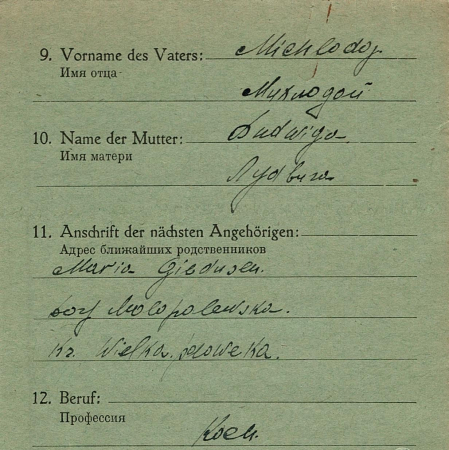 9. Vorname des Vaters: Michlodoj
Имя отца
Мухлодой
10. Name der Mutter: Ludwiga.
Имя матери
Лудвига
11. Anschrift der nächsten Angehörigen:
Адрес ближайших родственников
Maria
Dorf
Kr. Wielka
12. Beruf:
Профессия
Koch.